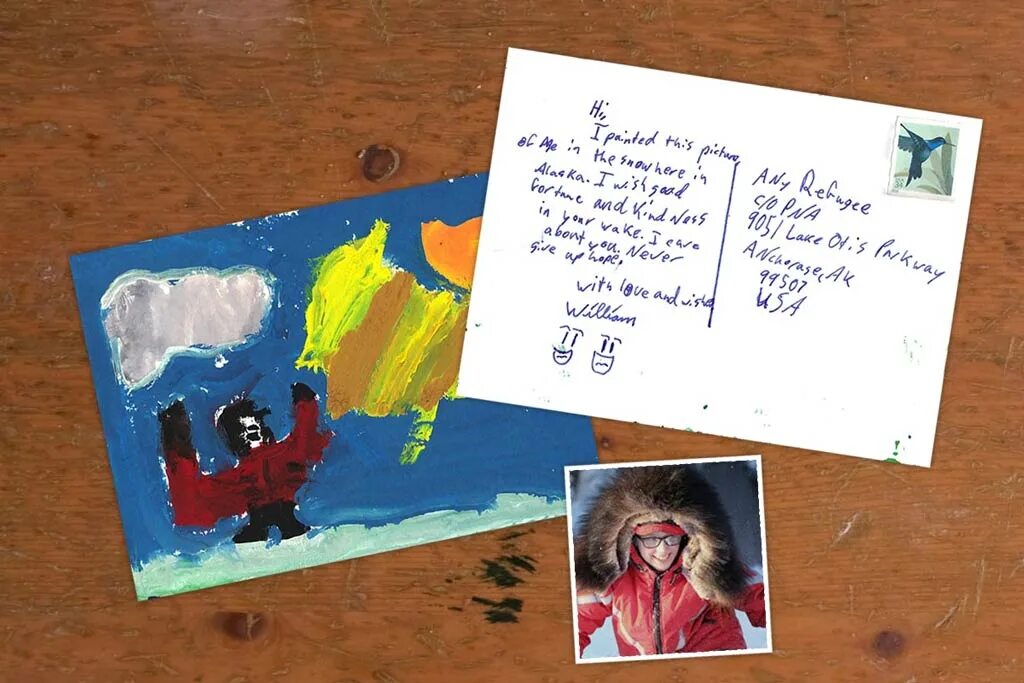 Hi,
I painted this picture
of Me in the snow here in
Alaska. I wish good
fortune and KindNess
in your wake. I care
about you. Never
give up hope,
with love and wishes
William
ANy Refugee
c/o PNA
9051 Lake Otis Parkway
ANchorage, AK
99507
USA